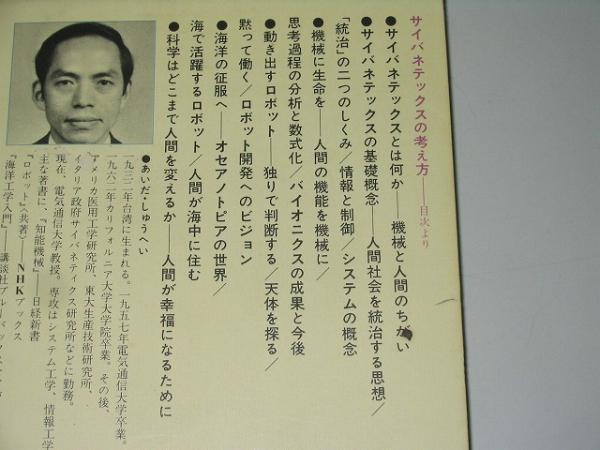 サイバネテックスの考え方——目次より
●サイバネテックスとは何か——機械と人間のちがい
●サイバネテックスの基礎概念——人間社会を統治する思想/
「統治」の二つのしくみ/情報と制御/システムの概念
●機械に生命を——人間の機能を機械に/
思考過程の分析と数式化/バイオニクスの成果と今後
●動き出すロボット——独りで判断する/天体を探る/
黙って働く/ロボット開発へのビジョン
●海洋の征服へ——オセアノトピアの世界/
海で活躍するロボット/人間が海中に住む
●科学はどこまで人間を変えるか——人間が幸福になるために
●あいだ・しゅうへい
一九三二年台湾に生まれる。一九五七年電気通信大学卒業。
一九六二年カリフォルニア大学大学院卒業。その後、
アメリカ医用工学研究所、東大生産技術研究所、
イタリア政府サイバネティクス研究所などに勤務。
現在、電気通信大学教授。専攻はシステム工学、情報工学
主な著書に、『知能機械』——日経新書
『ロボット』〈共著〉——NHKブックス
『海洋工学入門』——講談社ブルーバックス